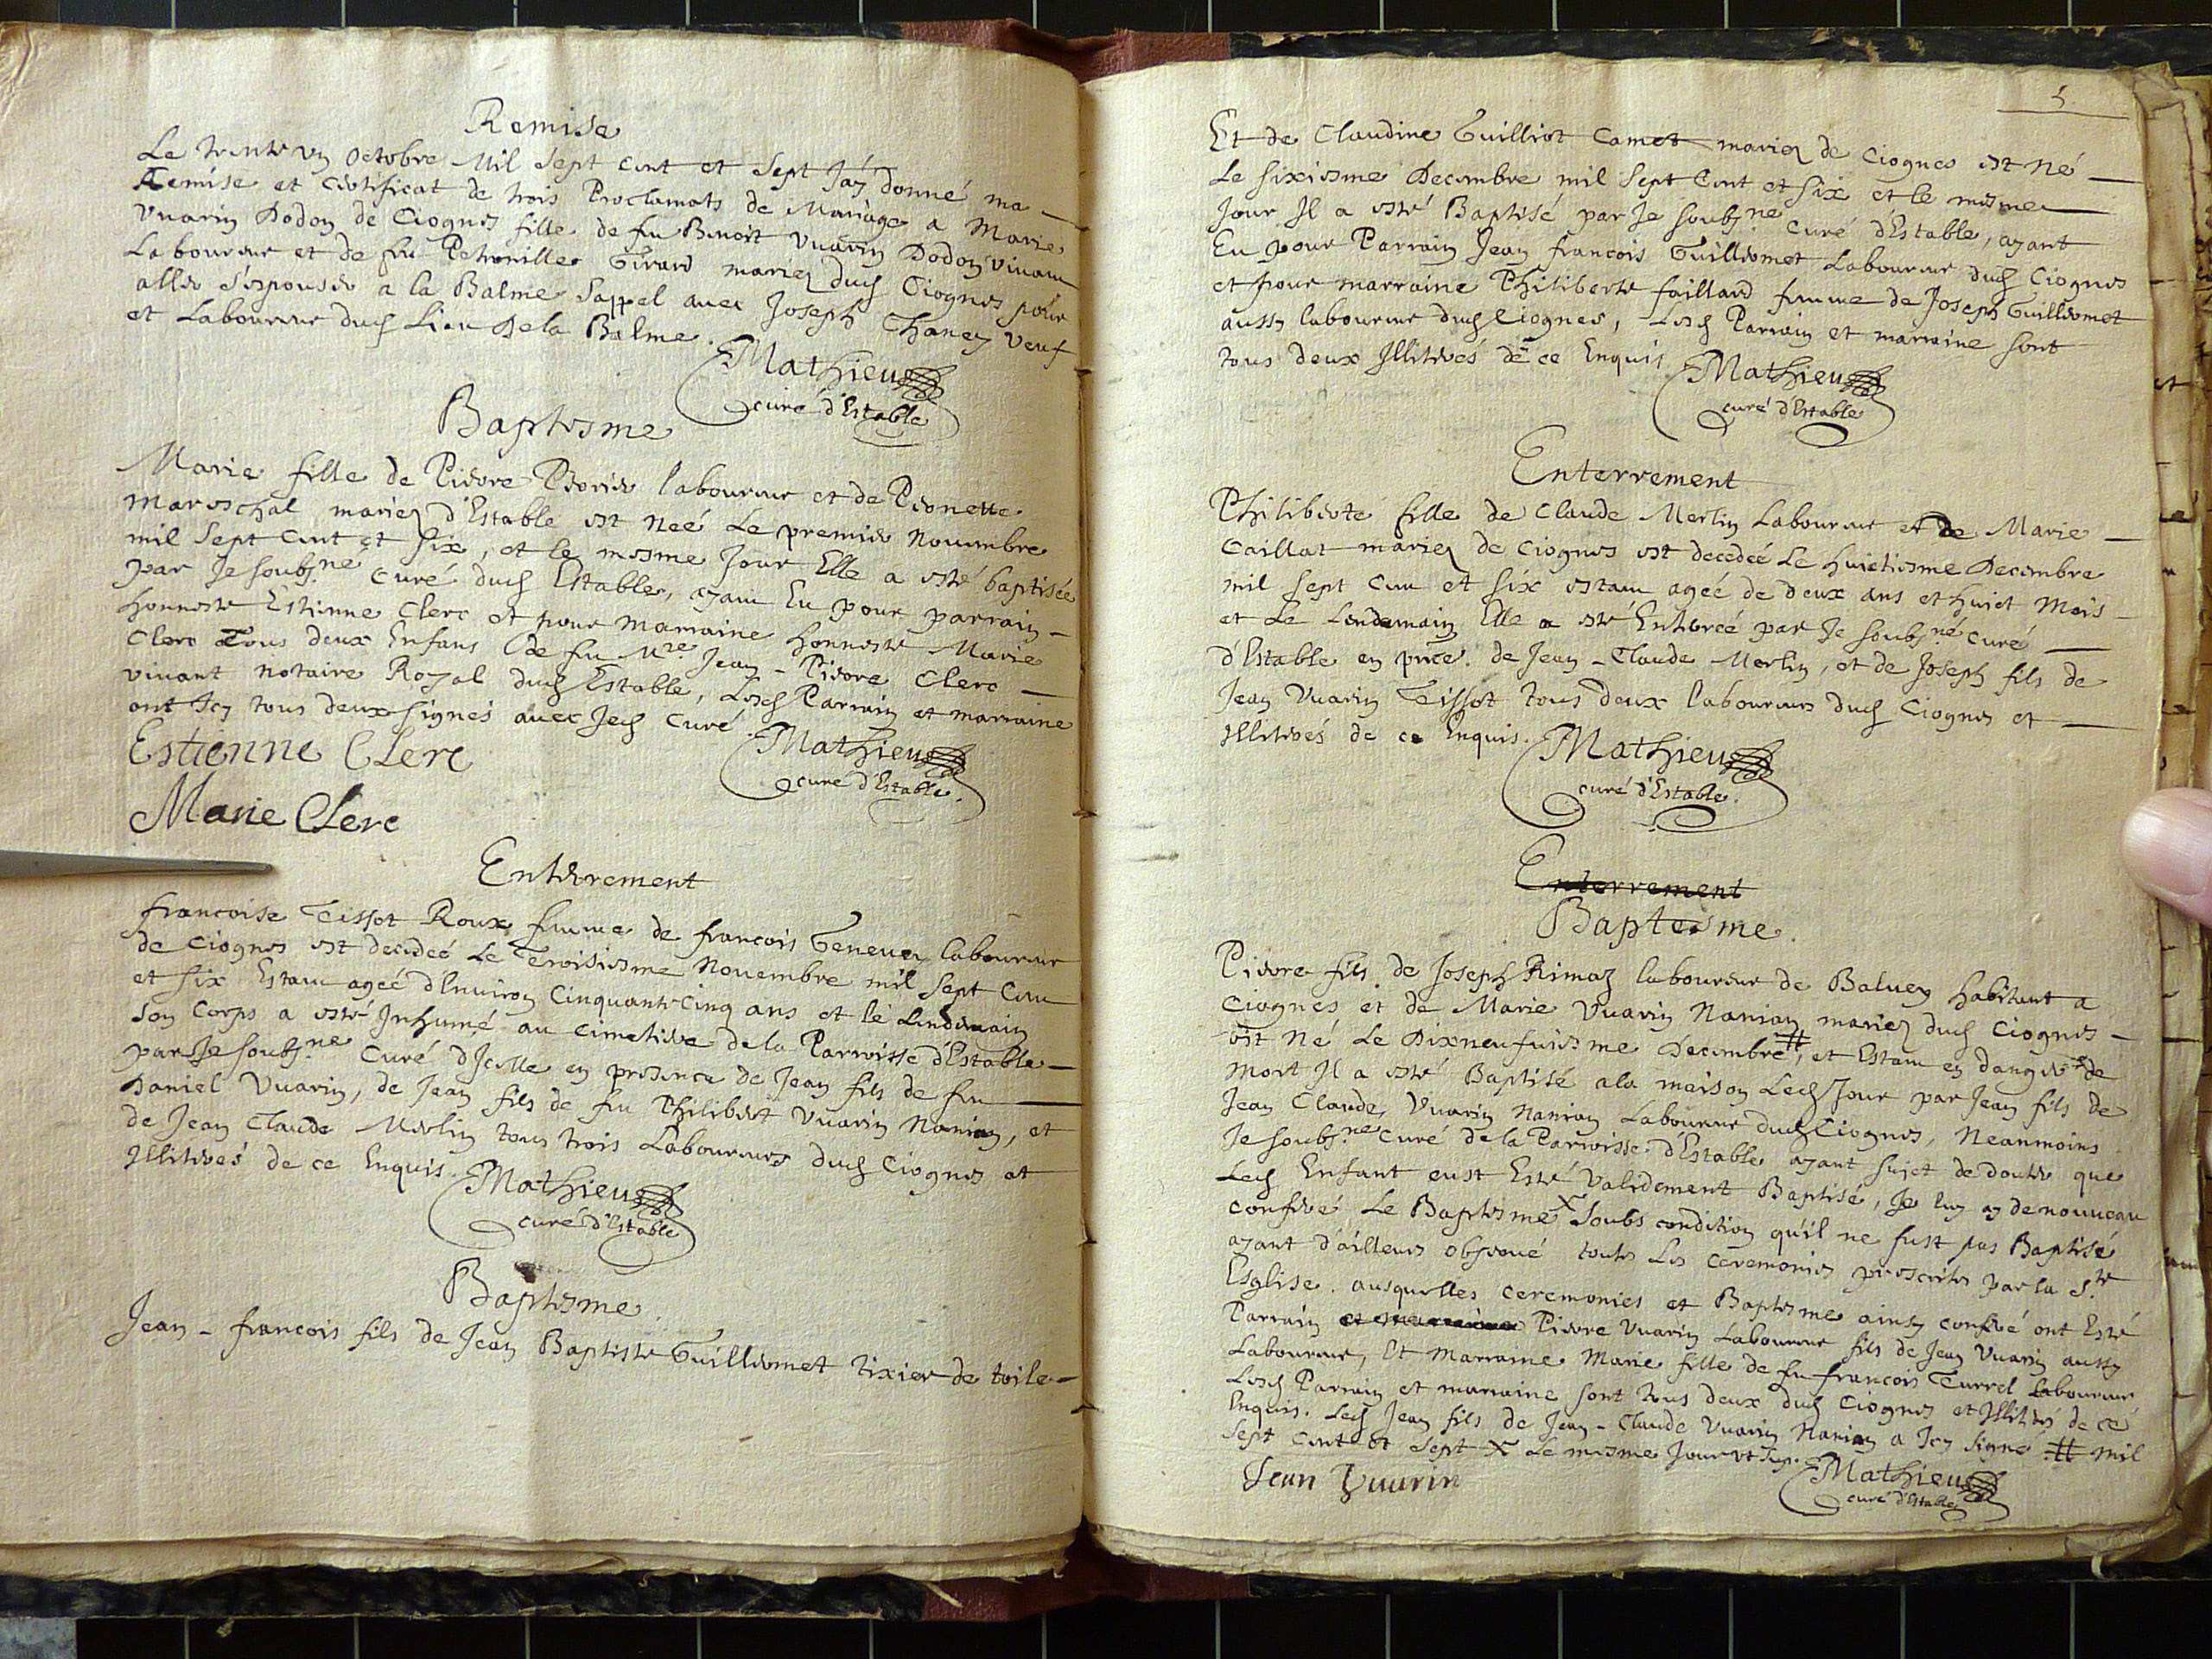 Remise
Le trente un octobre Mil Sept cent et Sept Jáy donné ma
Remise et certificat de trois Proclamats de Mariage a Marie
Vuarin Dodon de Ciognes fille de fu Benoit Vuarin Dodon vivant
Laboureur et de fu Petronille Girard mariez dud Ciognes pour
aller s'espouser a la Balme Sappel avec Joseph Thaney veuf
et Laboureur dud Lieu De la Balme.
Mathieu
curé d'Estable
Baptesme
Marie fille de Pierre laboureur et de Pernette
Mareschal mariez d'Estable est Neé Le premier Novembre
mil Sept Cent et Six, et le mesme Jour Elle a esté baptisée
par Je soubs.né Curé dud Estable, ayant Eu pour parrain
honneste Estienne Clerc et pour marraine honneste Marie
Clerc Tous deux Enfans de fu Mre Jean-Pierre Clerc
vivant notaire Royal dud Estable, Lesd Parrain et marraine
ont Icy tous deux signés avec Jed Curé.
Estienne Clerc
Mathieu
curé d'Estable.
Marie Clerc
Enterrement
francoise Tissot Roux femme de francois Genevey laboureur
de Ciognes est decedeé Le Troisiesme Novembre mil Sept Cent
et six Estant ageé d'Environ Cinquante Cinq ans et le Lendemain
Son Corps a esté Inhumé au cimetiere de la Parroisse d'Estable
par Je soubs.né Curé d'Icelle en presence de Jean fils de fu
Daniel Vuarin, de Jean fils de fu Philibert Vuarin Nanian, et
de Jean Claude Merlin tous trois Laboureurs dud Ciognes et
Illiterés de ce Enquis.
Mathieu
curé d'Estable
Baptesme
Jean-francois fils de Jean Baptiste Guillermet tixier de toile
5
Et de Claudine Guilliot Camet mariez de Ciognes est Né
Le sixiesme Decembre mil Sept Cent et six et le mesme
Jour Il a esté Baptisé par Je soubs.né Curé d'Estable, ayant
Eu pour Parrain Jean francois Guillermet Laboureur dud Ciognes
et pour marraine Philiberte faillard femme de Joseph Guillermet
aussy laboureur dud Ciognes, Lesd Parrain et marraine sont
tous deux Illiterés de ce Enquis
Mathieu
curé d'Estable
Enterrement
Philiberte fille de Claude Merlin Laboureur et de Marie
Caillat mariez de Ciognes est decedeé Le huictiesme Decembre
mil Sept Cent et Six estant ageé de deux ans et huict Mois
et Le Lendemain Elle a esté Enterreé par Je soubs.né curé
d'Estable en pnce. de Jean-Claude Merlin, et de Joseph fils de
Jean Vuarin Teissot tous deux laboureurs dud Ciognes et
Illiterés de ce Enquis.
Mathieu
curé d'Estable.
Enterrement
Baptesme.
Pierre fils de Joseph Rimaz laboureur de Baluey habitant a
Ciognes et de Marie Vuarin Nanian mariez dud Ciognes
est Né Le Dixneufuiesme Decembre #, et Estant en danger de
Mort Il a esté Baptisé a la maison Led Jour par Jean fils de
Jean Claude Vuarin Nanian Laboureur dud Ciognes, Neanmoins
Je soubs.né Curé de la Parroisse d'Estable ayant sujet de doute que
Led Enfant eust Esté Validement Baptisé, Je luy ay de nouveau
conferé Le Baptesme X Soubs condition qu'il ne fust pas Baptisé
ayant d'ailleurs observé toutes Les ceremonies prescrites par la Ste
Esglise. ausquelles ceremonies et Baptesme ainsy conferé ont Esté
Parrain et marraine Pierre Vuarin Laboureur fils de Jean Vuarin aussy
Laboureur, Et Marraine Marie fille de fu francois Turrel Laboureur
Lesd Parrain et marraine sont tous deux dud Ciognes et Illiterés de ce
Enquis. Led Jean fils de Jean-Claude Vuarin Nanian a Icy signé # mil
Sept Cent et Sept X Le mesme Jour vt sup.
Jean Vuarin
Mathieu
curé d'Estable